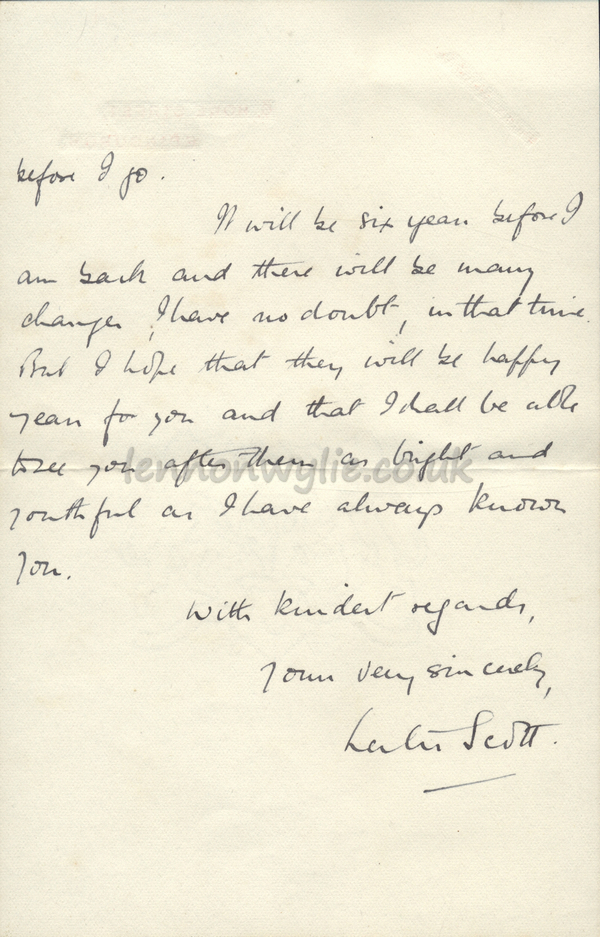 before I go.
It will be six years before I
am back and there will be many
changes, I have no doubt, in that time.
But I hope that they will be happy
years for you and that I shall be able
to see you after them as bright and
lennonwylie.co.uk
youthful as I have always known
you.
With kindest regards,
Yours very sincerely,
Leslie Scott.